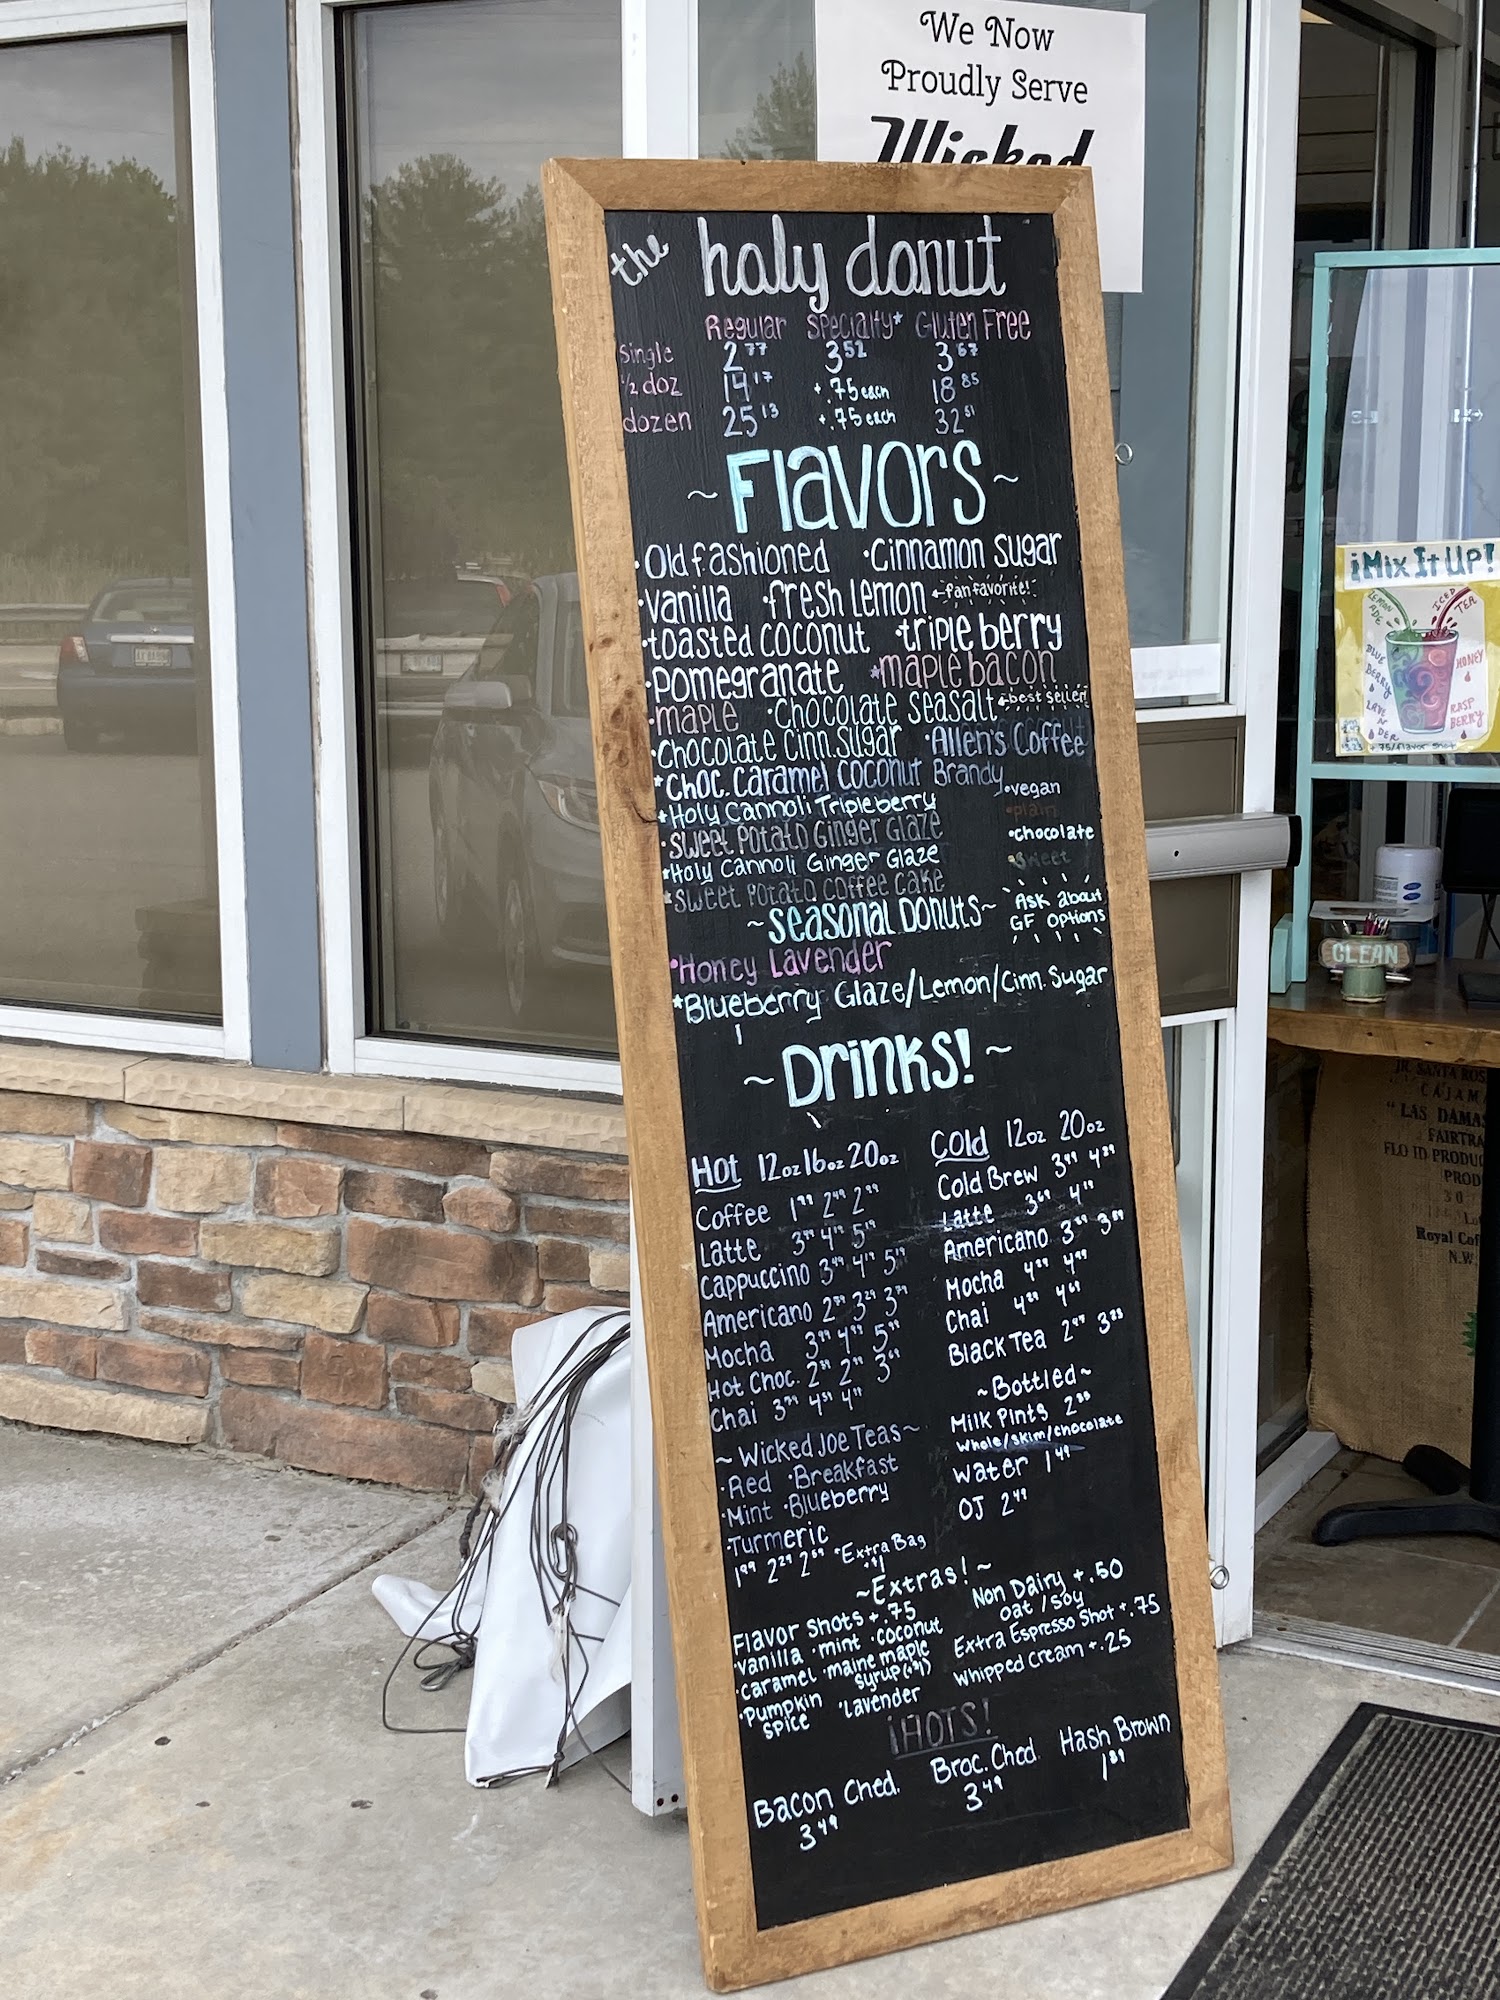 We Now
Proudly Serve
Wicked
the holy donut
Regular Specialty* Gluten Free
single 2.77 3.52 3.67
1/2 doz 14.17 +.75 each 18.85
dozen 25.13 +.75 each 32.51
~ Flavors ~
·Old fashioned ·Cinnamon Sugar
·Vanilla ·fresh Lemon ←fan favorite!
·toasted coconut ·triple berry
·Pomegranate *maple bacon
·maple ·Chocolate seasalt ←best seller!
·Chocolate Cinn. Sugar ·Allen's Coffee
Brandy
*Choc. Caramel Coconut
*Holy Cannoli Tripleberry
·Sweet Potato Ginger Glaze
*Holy Cannoli Ginger Glaze
*Sweet Potato Coffee Cake
·vegan
·plain
·chocolate
·sweet
Ask about
GF options
~Seasonal Donuts~
·Honey Lavender
*Blueberry Glaze/Lemon/Cinn. Sugar
~ Drinks! ~
Hot 12oz 16oz 20oz
Coffee 1.99 2.49 2.99
Latte
Cappuccino
Americano
Mocha
Hot Choc.
Chai
~ Wicked Joe Teas~
·Red ·Breakfast
·Mint ·Blueberry
·Turmeric
1.99 2.29 2.59 *Extra Bag
+$1
Cold 12oz 20oz
Cold Brew 3.99 4.89
Latte
Americano
Mocha
Chai
Black Tea
~Bottled~
Milk Pints
Whole/skim/chocolate
Water 1.49
OJ 2.49
~Extras!~
Flavor Shots +.75
·vanilla ·mint ·coconut
·caramel ·maine maple
syrup
·Pumpkin
spice ·lavender
Non Dairy +.50
oat / soy
Extra Espresso Shot +.75
Whipped Cream +.25
¡HOTS!
Bacon Ched.
3.49
Broc. Ched.
3.49
Hash Brown
1.89
¡Mix It Up!
LEMON
ADE
ICED
TEA
BLUE
BERRY
HONEY
LAVE
N
DER
RASP
BERRY
+.75/flavor shot
CLEAN
JR. SANTA ROS
CAJAM
"LAS DAMAS
FAIRTRA
FLO ID PRODUC
PROD
Royal Cof
N.W.